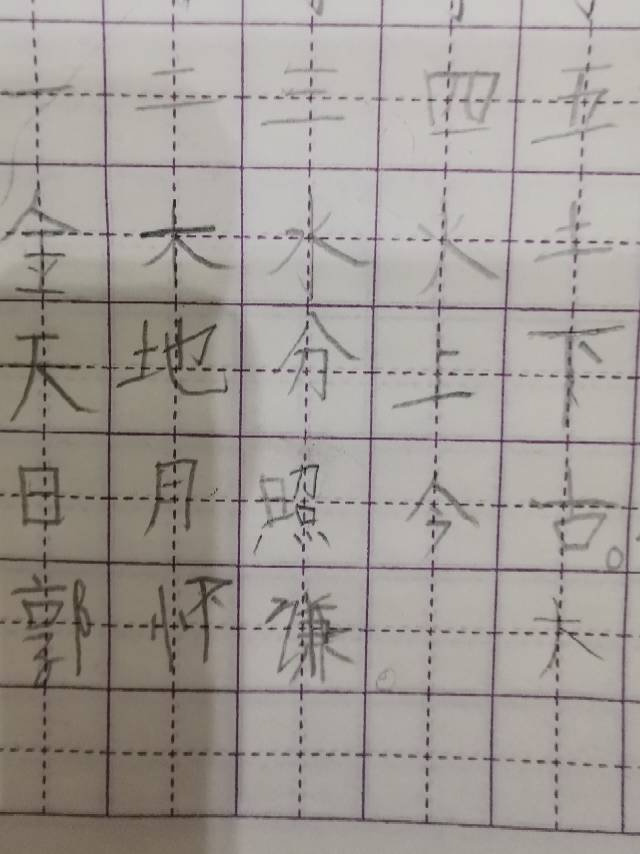 一二三四五
金木水火土
天地分上下
日月照今古。
郭怀谦。大